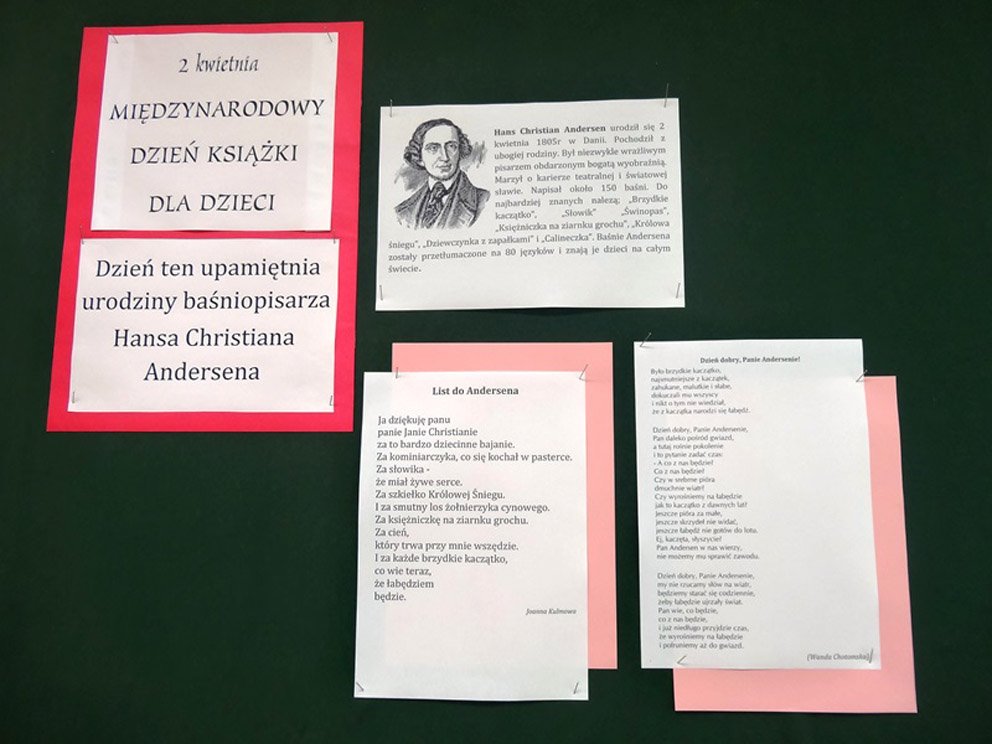 2 kwietnia
MIĘDZYNARODOWY
DZIEŃ KSIĄŻKI
DLA DZIECI
Dzień ten upamiętnia
urodziny baśniopisarza
Hansa Christiana
Andersena
Hans Christian Andersen urodził się 2
kwietnia 1805r w Danii. Pochodził z
ubogiej rodziny. Był niezwykle wrażliwym
pisarzem obdarzonym bogatą wyobraźnią.
Marzył o karierze teatralnej i światowej
sławie. Napisał około 150 baśni. Do
najbardziej znanych należą: „Brzydkie
kaczątko”, „Słowik” „Świnopas”,
„Księżniczka na ziarnku grochu”, „Królowa
śniegu”, „Dziewczynka z zapałkami” i „Calineczka”. Baśnie Andersena
zostały przetłumaczone na 80 języków i znają je dzieci na całym
świecie.
List do Andersena
Ja dziękuję panu
panie Janie Christianie
za to bardzo dziecinne bajanie.
Za kominiarczyka, co się kochał w pasterce.
Za słowika -
że miał żywe serce.
Za szkiełko Królowej Śniegu.
I za smutny los żołnierzyka cynowego.
Za księżniczkę na ziarnku grochu.
Za cień,
który trwa przy mnie wszędzie.
I za każde brzydkie kaczątko,
co wie teraz,
że łabędziem
będzie.
Joanna Kulmowa
Dzień dobry, Panie Andersenie!
Było brzydkie kaczątko,
najsmutniejsze z kaczątek,
zahukane, malutkie i słabe,
dokuczali mu wszyscy
i nikt o tym nie wiedział,
że z kaczątka narodzi się łabędź.
Dzień dobry, Panie Andersenie,
Pan daleko pośród gwiazd,
a tutaj rośnie pokolenie
i to pytanie zadać czas:
- A co z nas będzie?
Co z nas będzie?
Czy w srebrne pióra
dmuchnie wiatr?
Czy wyrośniemy na łabędzie
jak to kaczątko z dawnych lat?
Jeszcze pióra za małe,
jeszcze skrzydeł nie widać,
jeszcze łabędź nie gotów do lotu.
Ej, kaczęta, słyszycie!
Pan Andersen w nas wierzy,
nie możemy mu sprawić zawodu.
Dzień dobry, Panie Andersenie,
my nie rzucamy słów na wiatr,
będziemy starać się codziennie,
żeby łabędzie ujrzały świat.
Pan wie, co będzie,
co z nas będzie,
i już niedługo przyjdzie czas,
że wyrośniemy na łabędzie
i pofruniemy aż do gwiazd.
(Wanda Chotomska)